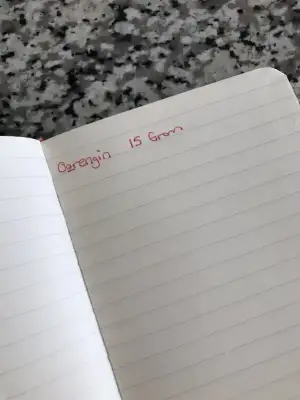 Oerengin 15 Gram